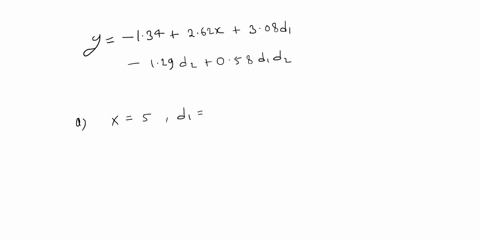 y = -1.34 + 2.62x + 3.08d₁
- 1.29 d₂ + 0.58 d₁ d₂
a) x = 5 , d₁ =